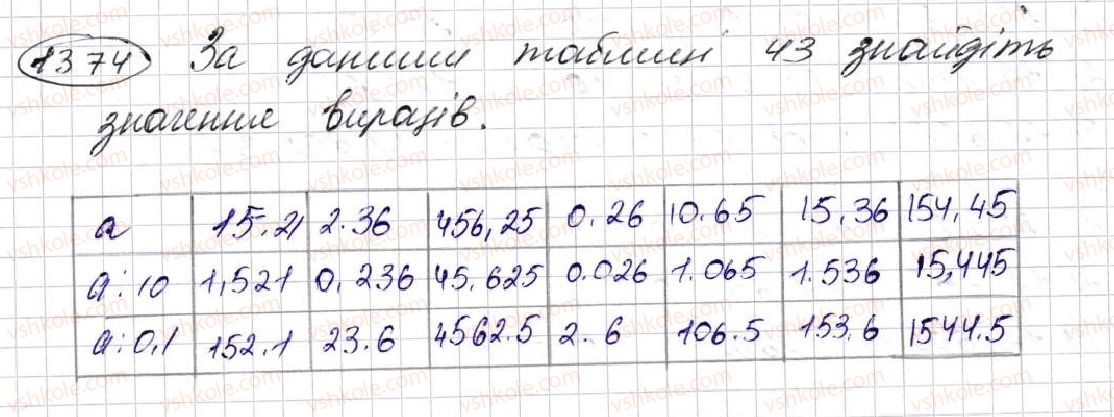 1374 За даними таблиці 43 знайдіть
значення виразів.
a 15.21 2.36 456,25 0.26 10.65 15,36 154,45
a:10 1,521 0,236 45,625 0.026 1.065 1.536 15,445
a:0,1 152.1 23.6 4562.5 2.6 106.5 153,6 1544.5